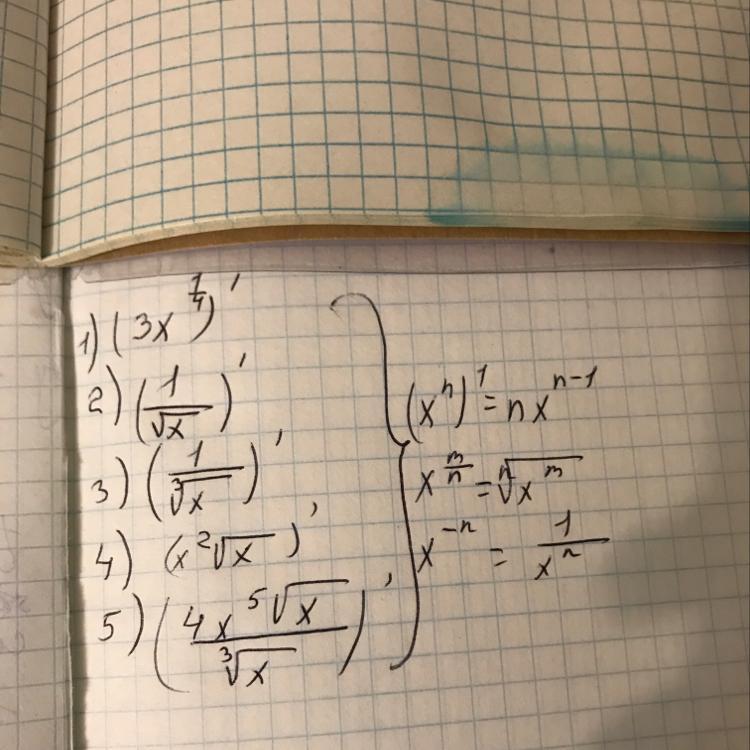 1) (3x^{1/4})'
2) (1/√x)'
3) (1/∛x)'
4) (x²√x)'
5) (4x ⁵√x / ∛x)'
(xⁿ)' = nx^{n-1}
x^{m/n} = ⁿ√x^m
x^{-n} = 1/xⁿ